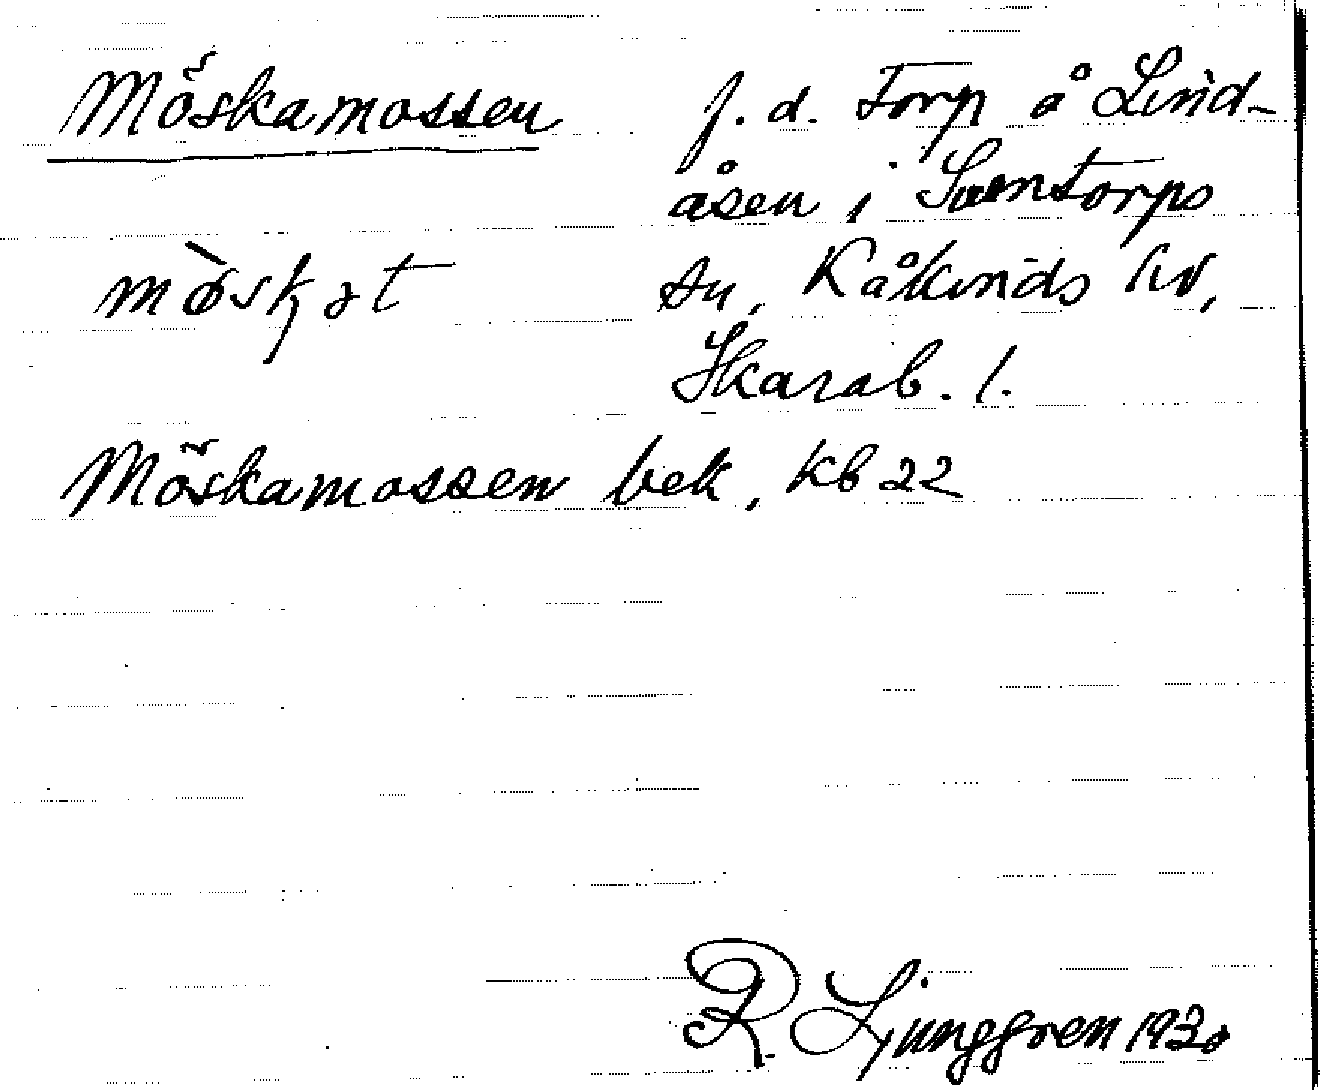 Möskamossen f. d. Torp å Lind-
åsen i Suntorps
sn, Kåkinds hd,
Skarab. l.
Möskamossen bek, Kb 22
R. Ljunggren 1930